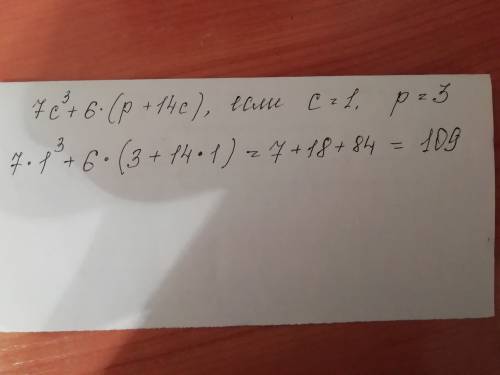 7c³+6·(p+14c), если c=1, p=3
7·1³+6·(3+14·1)=7+18+84=109